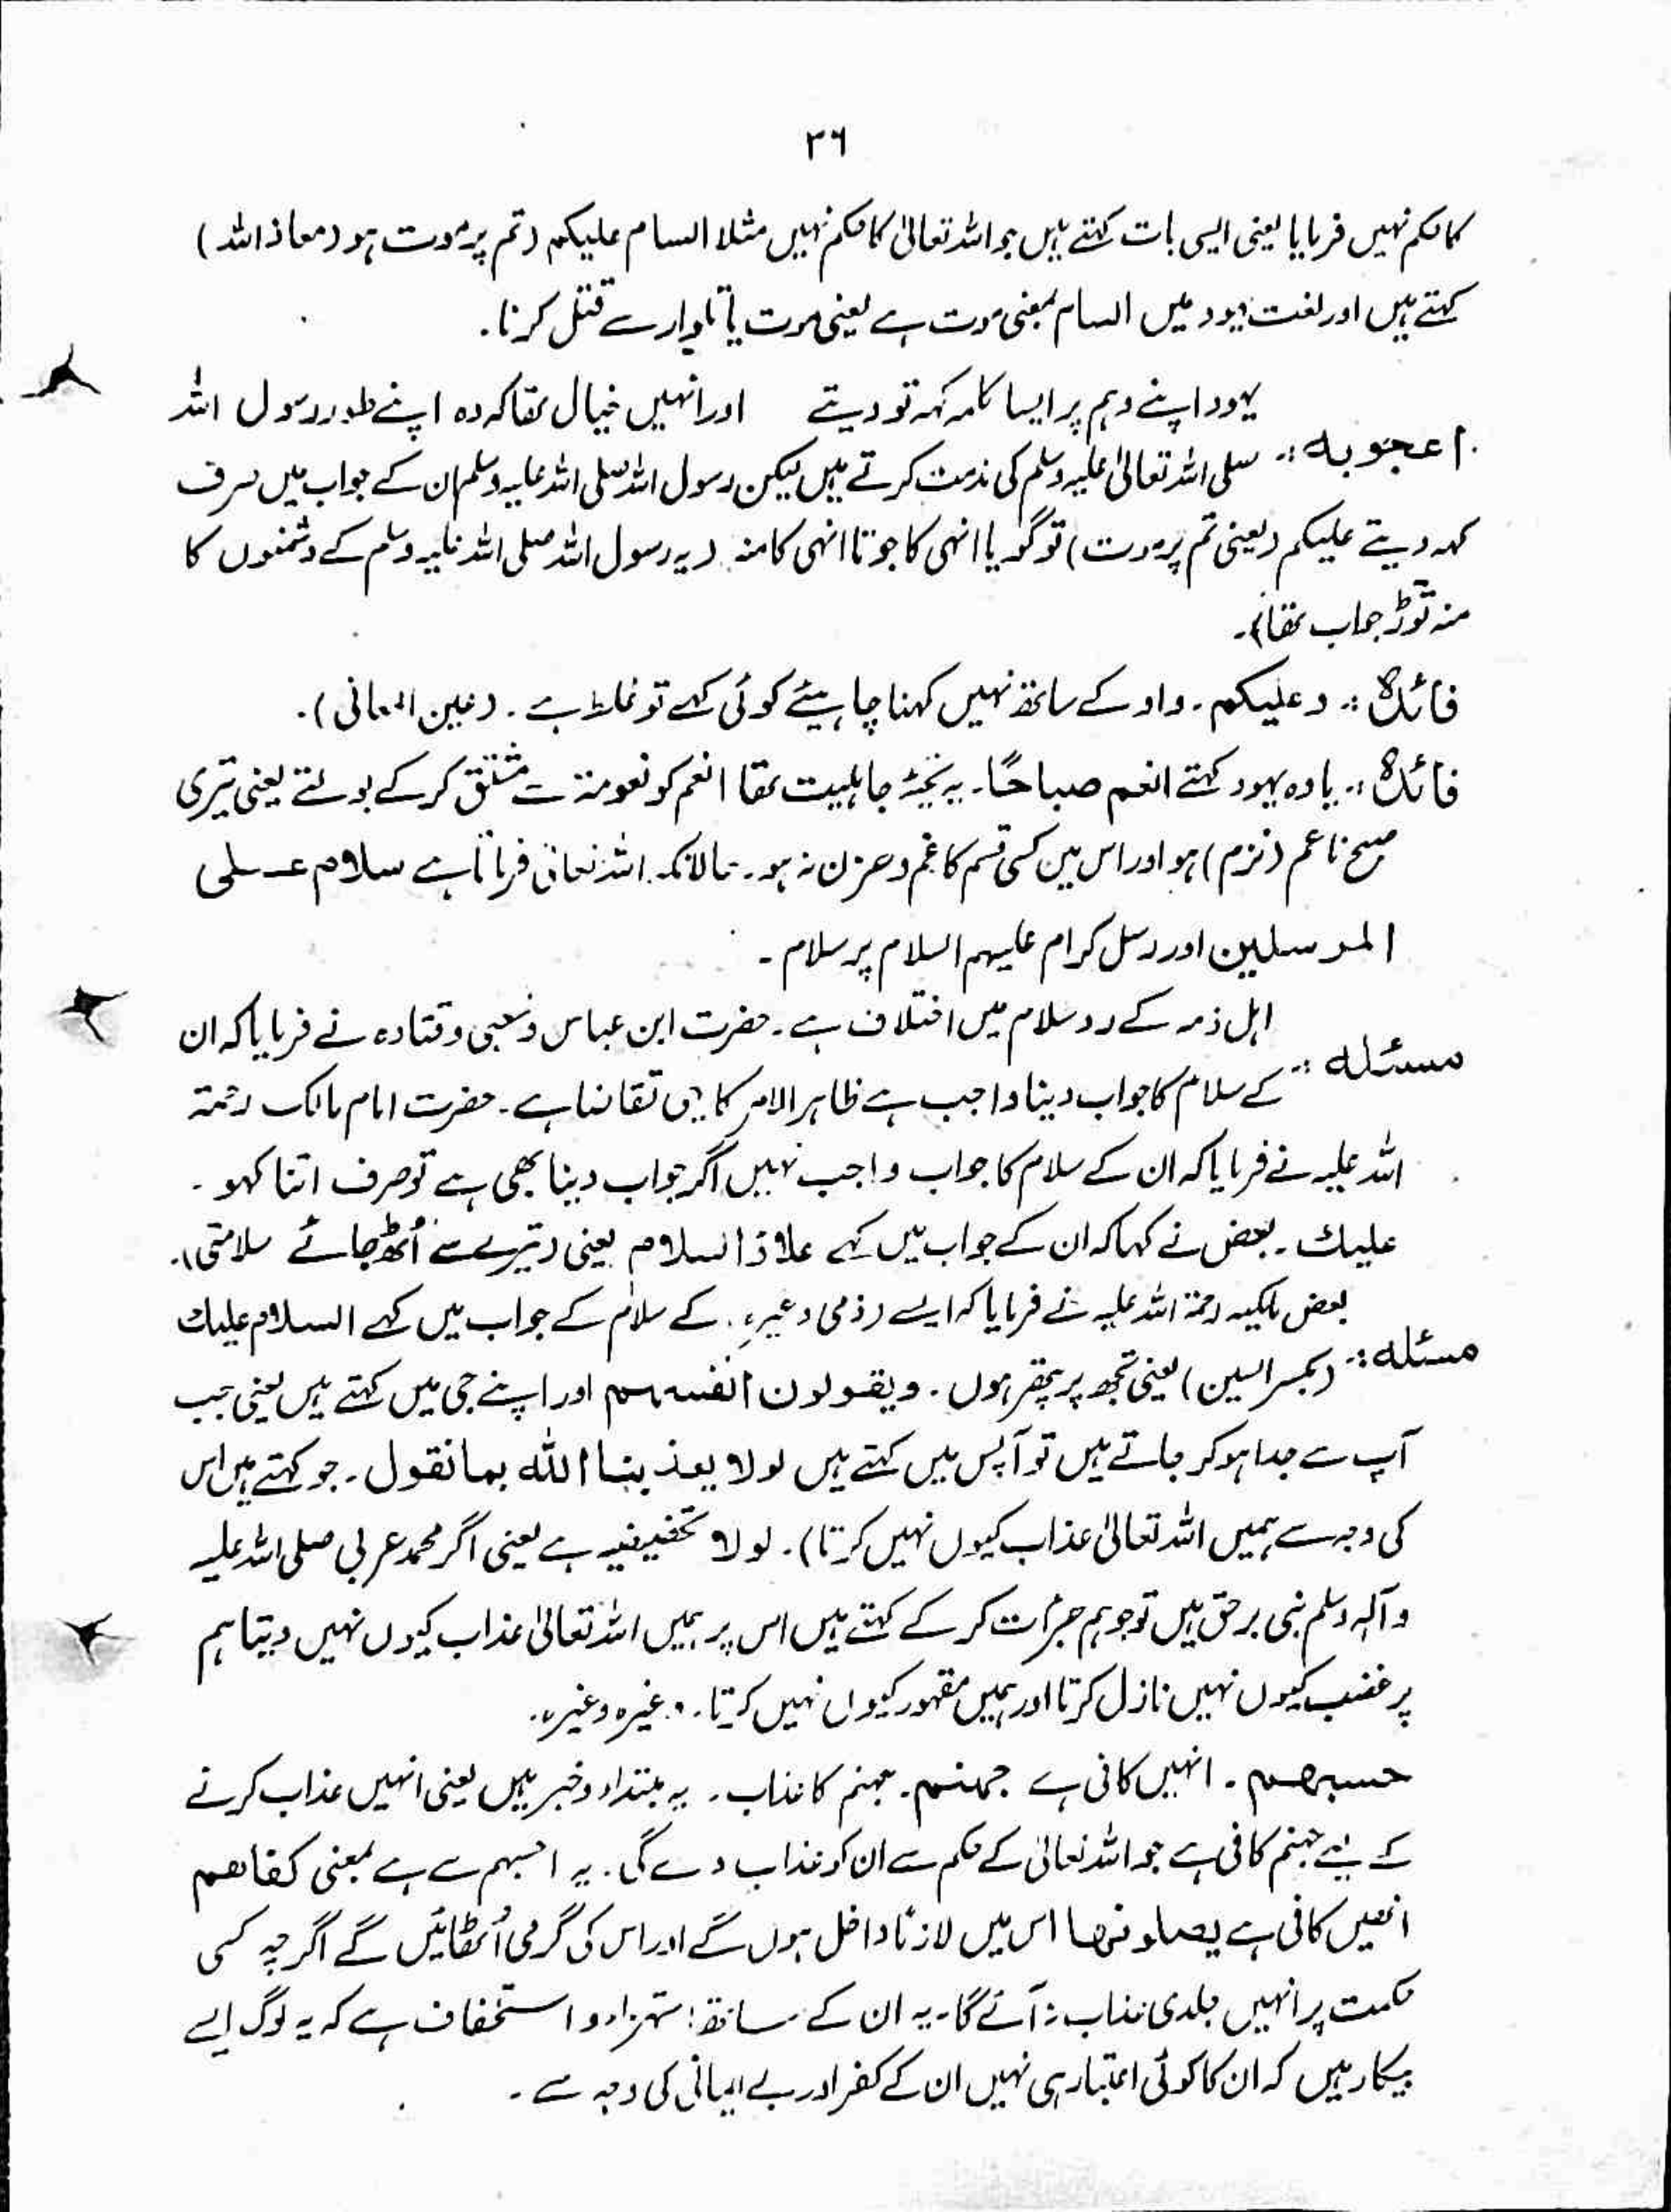 ۳۶
کا حکم نہیں فرمایا یعنی ایسی بات کہتے ہیں جو اللہ تعالیٰ کا حکم نہیں مثلا السام علیکم (تم پر موت ہو (معاذ اللہ)
کہتے ہیں اور لغت یہود میں السام بمعنی موت ہے یعنی موت یا تلوار سے قتل کرنا۔
یہود اپنے وہم پر ایسا کلمہ کہہ تو دیتے اور انہیں خیال تھا کہ وہ اپنے طور رسول اللہ
اعجوبہ :۔ صلی اللہ تعالیٰ علیہ وسلم کی مذمت کرتے ہیں لیکن رسول اللہ صلی اللہ علیہ وسلم ان کے جواب میں صرف
کہہ دیتے علیکم (یعنی تم پر موت) تو گویا انہی کا جوتا انہی کا منہ (یہ رسول اللہ صلی اللہ علیہ وسلم کے دشمنوں کا
منہ توڑ جواب تھا)۔
فائدہ :۔ وعلیکم۔ واو کے ساتھ نہیں کہنا چاہیئے کوئی کہے تو غلط ہے۔ (عین المعانی)۔
فائدہ :۔ یا وہ یہود کہتے انعم صباحًا۔ یہ تحیۂ جاہلیت تھا انعم کو نعومۃ سے مشتق کر کے بولتے یعنی تیری
صبح ناعم (نرم) ہو اور اس میں کسی قسم کا غم و حزن نہ ہو۔ حالانکہ اللہ تعالیٰ فرماتا ہے سلام علی
المرسلین اور رسل کرام علیہم السلام پر سلام۔
اہل ذمہ کے رد سلام میں اختلاف ہے۔ حضرت ابن عباس و شعبی و قتادہ نے فرمایا کہ ان
مسئلہ :۔ کے سلام کا جواب دینا واجب ہے ظاہر الامر کا یہی تقاضا ہے۔ حضرت امام مالک رحمۃ
اللہ علیہ نے فرمایا کہ ان کے سلام کا جواب واجب نہیں اگر جواب دینا بھی ہے تو صرف اتنا کہو۔
علیك۔ بعض نے کہا کہ ان کے جواب میں کہے علاك السلام یعنی (تیرے سے اُٹھ جائے سلامتی)۔
بعض مالکیہ رحمۃ اللہ علیہ نے فرمایا کہ ایسے (ذمی وغیرہ) کے سلام کے جواب میں کہے السلام علیك
مسئلہ :۔ (بکسر السین) یعنی تجھ پر پتھر ہوں۔ ویقولون انفسہم اور اپنے جی میں کہتے ہیں یعنی جب
آپ سے جدا ہو کر جاتے ہیں تو آپس میں کہتے ہیں لولا یعذبنا اللّٰہ بما نقول۔ جو کہتے ہیں اس
کی وجہ سے ہمیں اللہ تعالیٰ عذاب کیوں نہیں کرتا)۔ لولا تخفیفیہ ہے یعنی اگر محمد عربی صلی اللہ علیہ
وآلہ وسلم نبی برحق ہیں تو جو ہم جرأت کر کے کہتے ہیں اس پر ہمیں اللہ تعالیٰ عذاب کیوں نہیں دیتا ہم
پر غضب کیوں نہیں نازل کرتا اور ہمیں مقہور کیوں نہیں کرتا۔ وغیرہ وغیرہ۔
حسبہم۔ انہیں کافی ہے جہنم۔ جہنم کا عذاب۔ یہ مبتداء و خبر ہیں یعنی انہیں عذاب کرنے
کے لیے جہنم کافی ہے جو اللہ تعالیٰ کے حکم سے ان کو عذاب دے گی۔ یہ احسبہم سے ہے بمعنی کفاھم
انھیں کافی ہے یصلونہا اس میں لازمًا داخل ہوں گے اور اس کی گرمی اُٹھائیں گے اگرچہ کسی
حکمت پر انہیں جلدی عذاب نہ آئے گا۔ یہ ان کے ساتھ استہزاء و استخفاف ہے کہ یہ لوگ ایسے
بیکار ہیں کہ ان کا کوئی اعتبار ہی نہیں ان کے کفر اور بے ایمانی کی وجہ سے۔